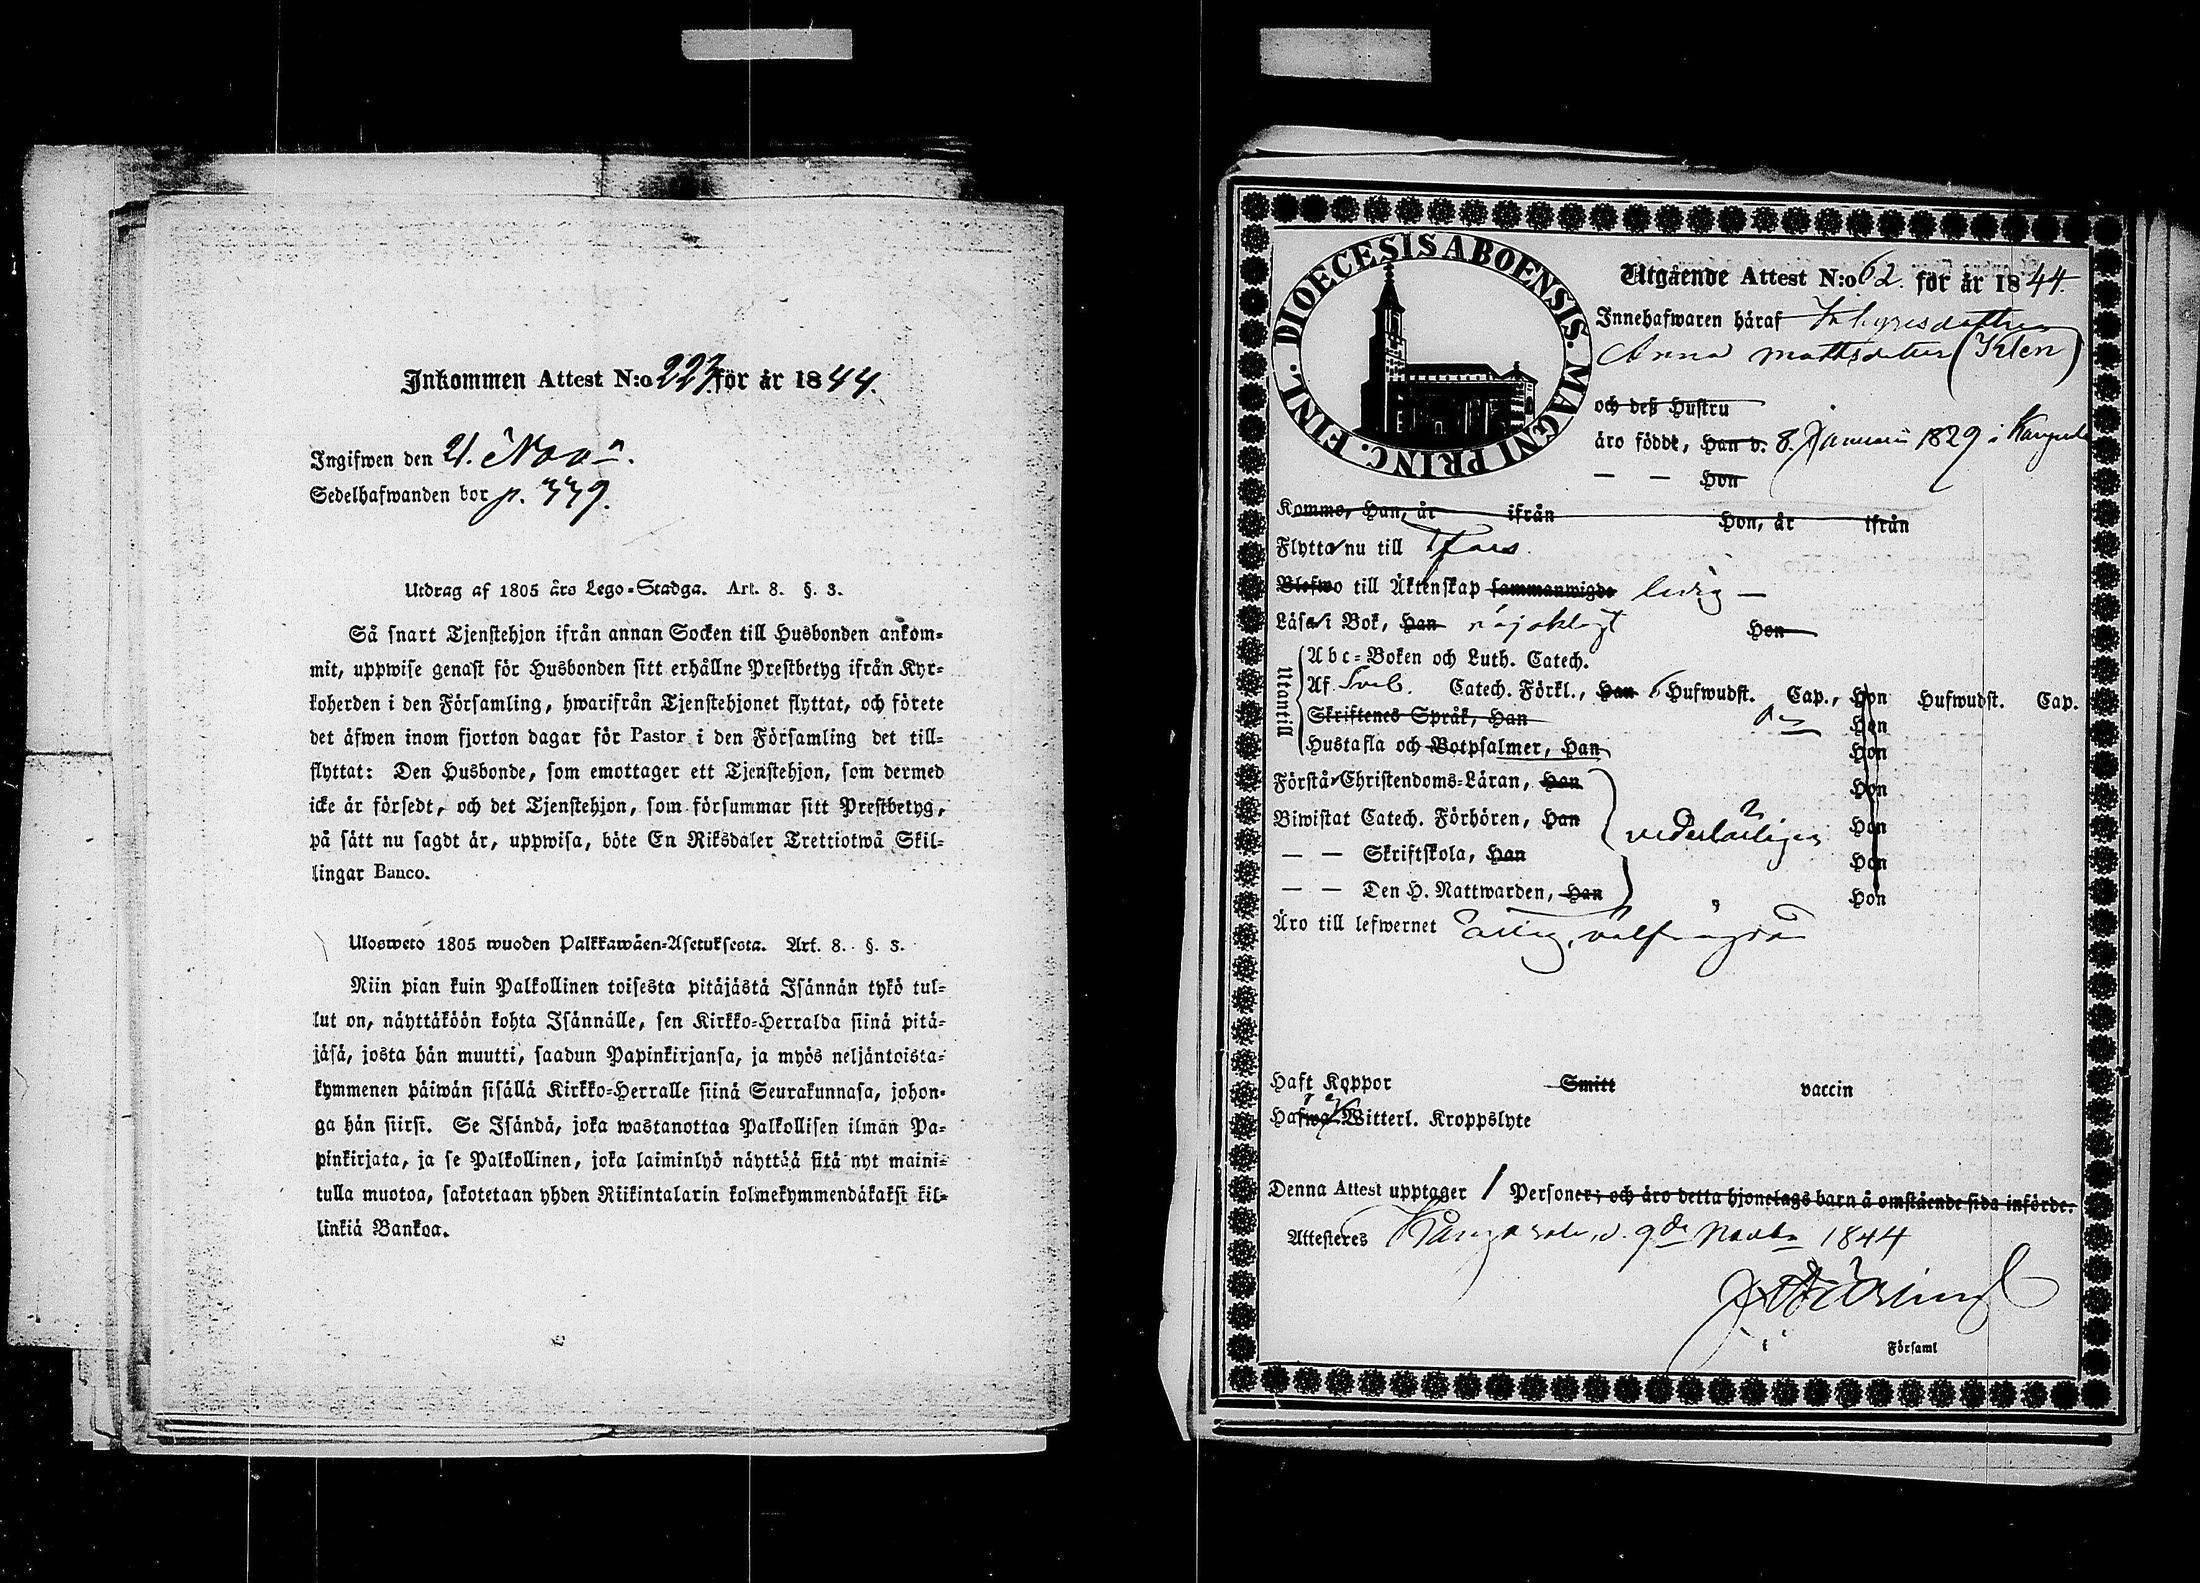 Inkommen Attest N:o 223 för år 1844.
Ingifwen den 21. Nov.
Sedelhafwanden bor p. 339.
Utdrag af 1805 års Lego-Stadga. Art. 8. §. 3.
Så snart Tjenstehjon ifrån annan Socken till Husbonden ankom-
mit, uppwise genast för Husbonden sitt erhållne Prestbetyg ifrån Kyr-
koherden i den Församling, hwarifrån Tjenstehjonet flyttat, och förete
det äfwen inom fjorton dagar för Pastor i den Församling det till-
flyttat: Den Husbonde, som emottager ett Tjenstehjon, som dermed
icke är försedt, och det Tjenstehjon, som försummar sitt Prestbetyg,
på sätt nu sagdt är, uppwisa, böte En Riksdaler Trettiotwå Skil-
lingar Banco.
Ulosweto 1805 wuoden Palkkawäen-Asetuksesta. Art. 8. §. 3.
Niin pian kuin Palkollinen toisesta pitäjästä Isännän tykö tul-
lut on, näyttäköön kohta Isännälle, sen Kirkko-Herralda siinä pitä-
jäsä, josta hän muutti, saadun Papinkirjansa, ja myös neljäntoista-
kymmenen päiwän sisällä Kirkko-Herralle siinä Seurakunnasa, johon-
ga hän siirsi. Se Isändä, joka wastanottaa Palkollisen ilman Pa-
pinkirjata, ja se Palkollinen, joka laiminlyö näyttää sitä nyt maini-
tulla muotoa, sakotetaan yhden Riikintalarin kolmekymmendäkaksi kil-
linkiä Bankoa.
DIOECESIS ABOENSIS. MAGNI PRINC. FINL.
Utgående Attest N:o 62. för år 1844.
Innehafwaren häraf
Anna Mattsdotter
och deß Hustru
äro födde, Han d. 8. Januarii 1829 i
— — Hon
Kommo, Han, år ifrån Hon, år ifrån
Flytta nu till
Blefwo till Äktenskap sammanwigde ledig —
Läsa i Bok, Han nöjaktigt Hon
Utantill
Abc-Boken och Luth. Catech.
Af Sveb. Catech. Förkl., Han 6 Hufwudst. Cap., Hon Hufwudst. Cap.
Skriftenes Språk, Han Hon
Hustafla och Botpsalmer, Han Hon
Förstå Christendoms-Läran, Han Hon
Biwistat Catech. Förhören, Han Hon
— — Skriftskola, Han Hon
— — Den H. Nattwarden, Han Hon
Äro till lefwernet
Haft Koppor Smitt vaccin
Hafwa Witterl. Kroppslyte
Denna Attest upptager 1 Personer; och äro detta hjonelags barn å omstående sida införde.
Attesteres Kangasala, d. 9de Novbr 1844
i Församl